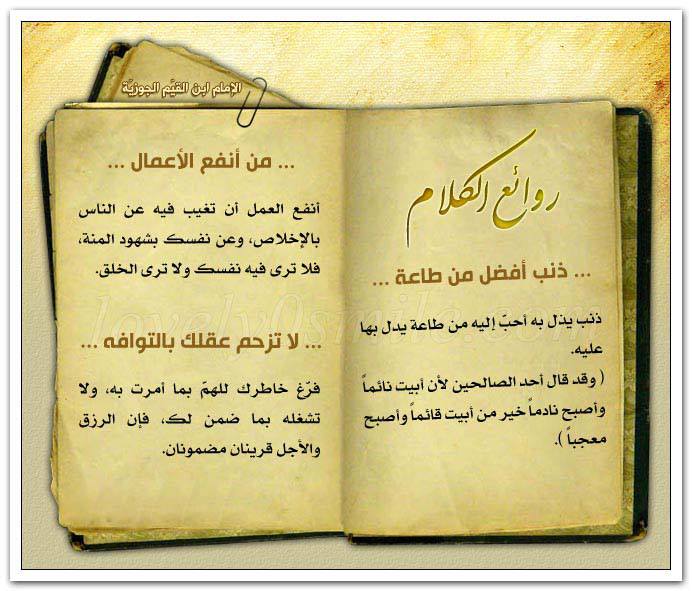 الإمام ابن القيّم الجوزيّة
روائع الكلام
... ذنب أفضل من طاعة ...
ذنب يذل به أحبّ إليه من طاعة يدل بها
عليه.
( وقد قال أحد الصالحين لأن أبيت نائماً
وأصبح نادماً خير من أبيت قائماً وأصبح
معجباً ).
... من أنفع الأعمال ...
أنفع العمل أن تغيب فيه عن الناس
بالإخلاص، وعن نفسك بشهود المنة،
فلا ترى فيه نفسك ولا ترى الخلق.
... لا تزحم عقلك بالتوافه ...
فرّغ خاطرك للهمّ بما أمرت به، ولا
تشغله بما ضمن لك، فإن الرزق
والأجل قرينان مضمونان.
lovely0smile.com